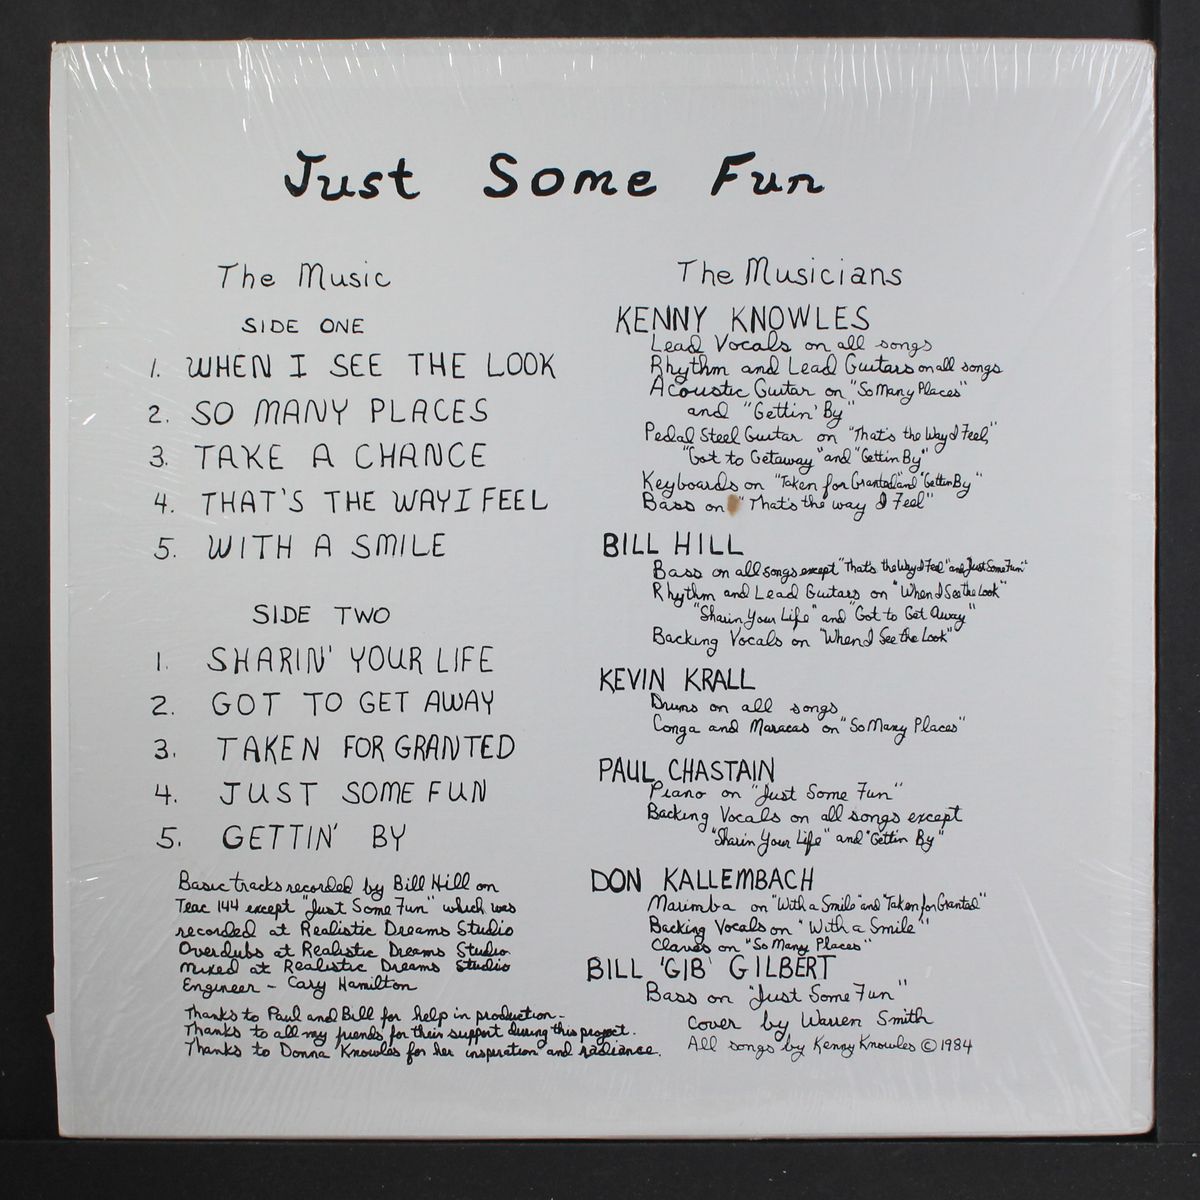 Just Some Fun
The Music
SIDE ONE
1. WHEN I SEE THE LOOK
2. SO MANY PLACES
3. TAKE A CHANCE
4. THAT'S THE WAY I FEEL
5. WITH A SMILE
SIDE TWO
1. SHARIN' YOUR LIFE
2. GOT TO GET AWAY
3. TAKEN FOR GRANTED
4. JUST SOME FUN
5. GETTIN' BY
Basic tracks recorded by Bill Hill on
Teac 144 except "Just Some Fun" which was
recorded at Realistic Dreams Studio
Overdubs at Realistic Dreams Studio
Mixed at Realistic Dreams Studio
Engineer - Cary Hamilton
Thanks to Paul and Bill for help in production.
Thanks to all my friends for their support during this project.
Thanks to Donna Knowles for her inspiration and radiance.
The Musicians
KENNY KNOWLES
Lead Vocals on all songs
Rhythm and Lead Guitars on all songs
Acoustic Guitar on "So Many Places"
and "Gettin' By"
Pedal Steel Guitar on "That's the Way I Feel,"
"Got to Getaway" and "Gettin By"
Keyboards on "Taken for Granted" and "Gettin By"
Bass on "That's the way I Feel"
BILL HILL
Bass on all songs except "That's the Way I Feel" and "Just Some Fun"
Rhythm and Lead Guitars on "When I See the Look"
"Sharin Your Life" and "Got to Get Away"
Backing Vocals on "When I See the Look"
KEVIN KRALL
Drums on all songs
Conga and Maracas on "So Many Places"
PAUL CHASTAIN
Piano on "Just Some Fun"
Backing Vocals on all songs except
"Sharin Your Life" and "Gettin By"
DON KALLEMBACH
Marimba on "With a Smile" and "Taken for Granted"
Backing Vocals on "With a Smile"
Claves on "So Many Places"
BILL 'GIB' GILBERT
Bass on "Just Some Fun"
Cover by Warren Smith
All songs by Kenny Knowles © 1984